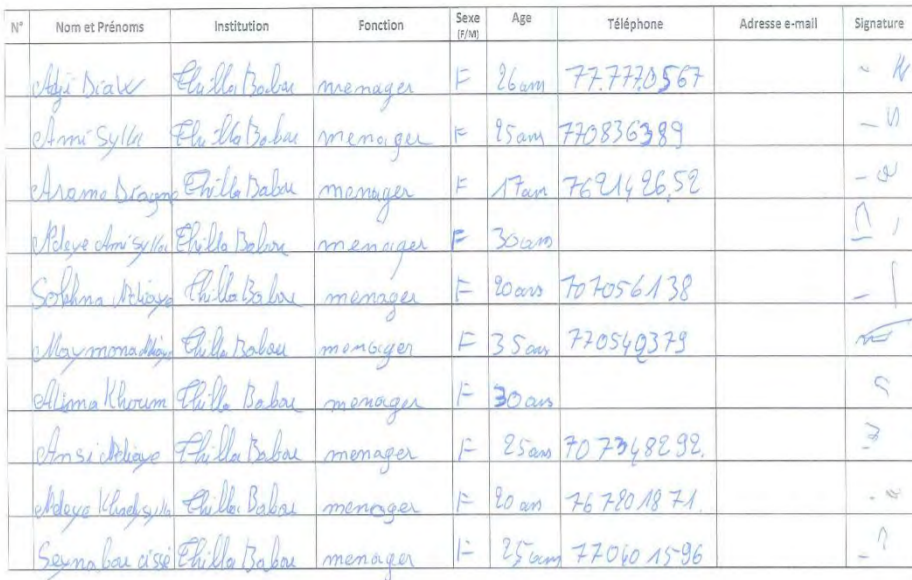 N° Nom et Prénoms Institution Fonction Sexe (F/M) Age Téléphone Adresse e-mail Signature
Adji Diaw Thilla Babou menager F 26 ans 77.777.0567
Ami Sylla Thilla Babou menager F 25 ans 770836389
Arame Diagne Thilla Babou menager F 17 ans 762142652
Ndeye Ami Sylla Thilla Babou menager F 30 ans
Sokhna Ndiaye Thilla Babou menager F 20 ans 707056138
Maymona Ndiaye Thilla Babou menager F 35 ans 770549379
Alima Khoum Thilla Babou menager F 30 ans
Ndiaye Thilla Babou menager F 25 ans 707348292.
Ndeye Khady Sylla Thilla Babou menager F 20 ans 767201871.
Seynabou cissé Thilla Babou menager F 25 ans 770401596